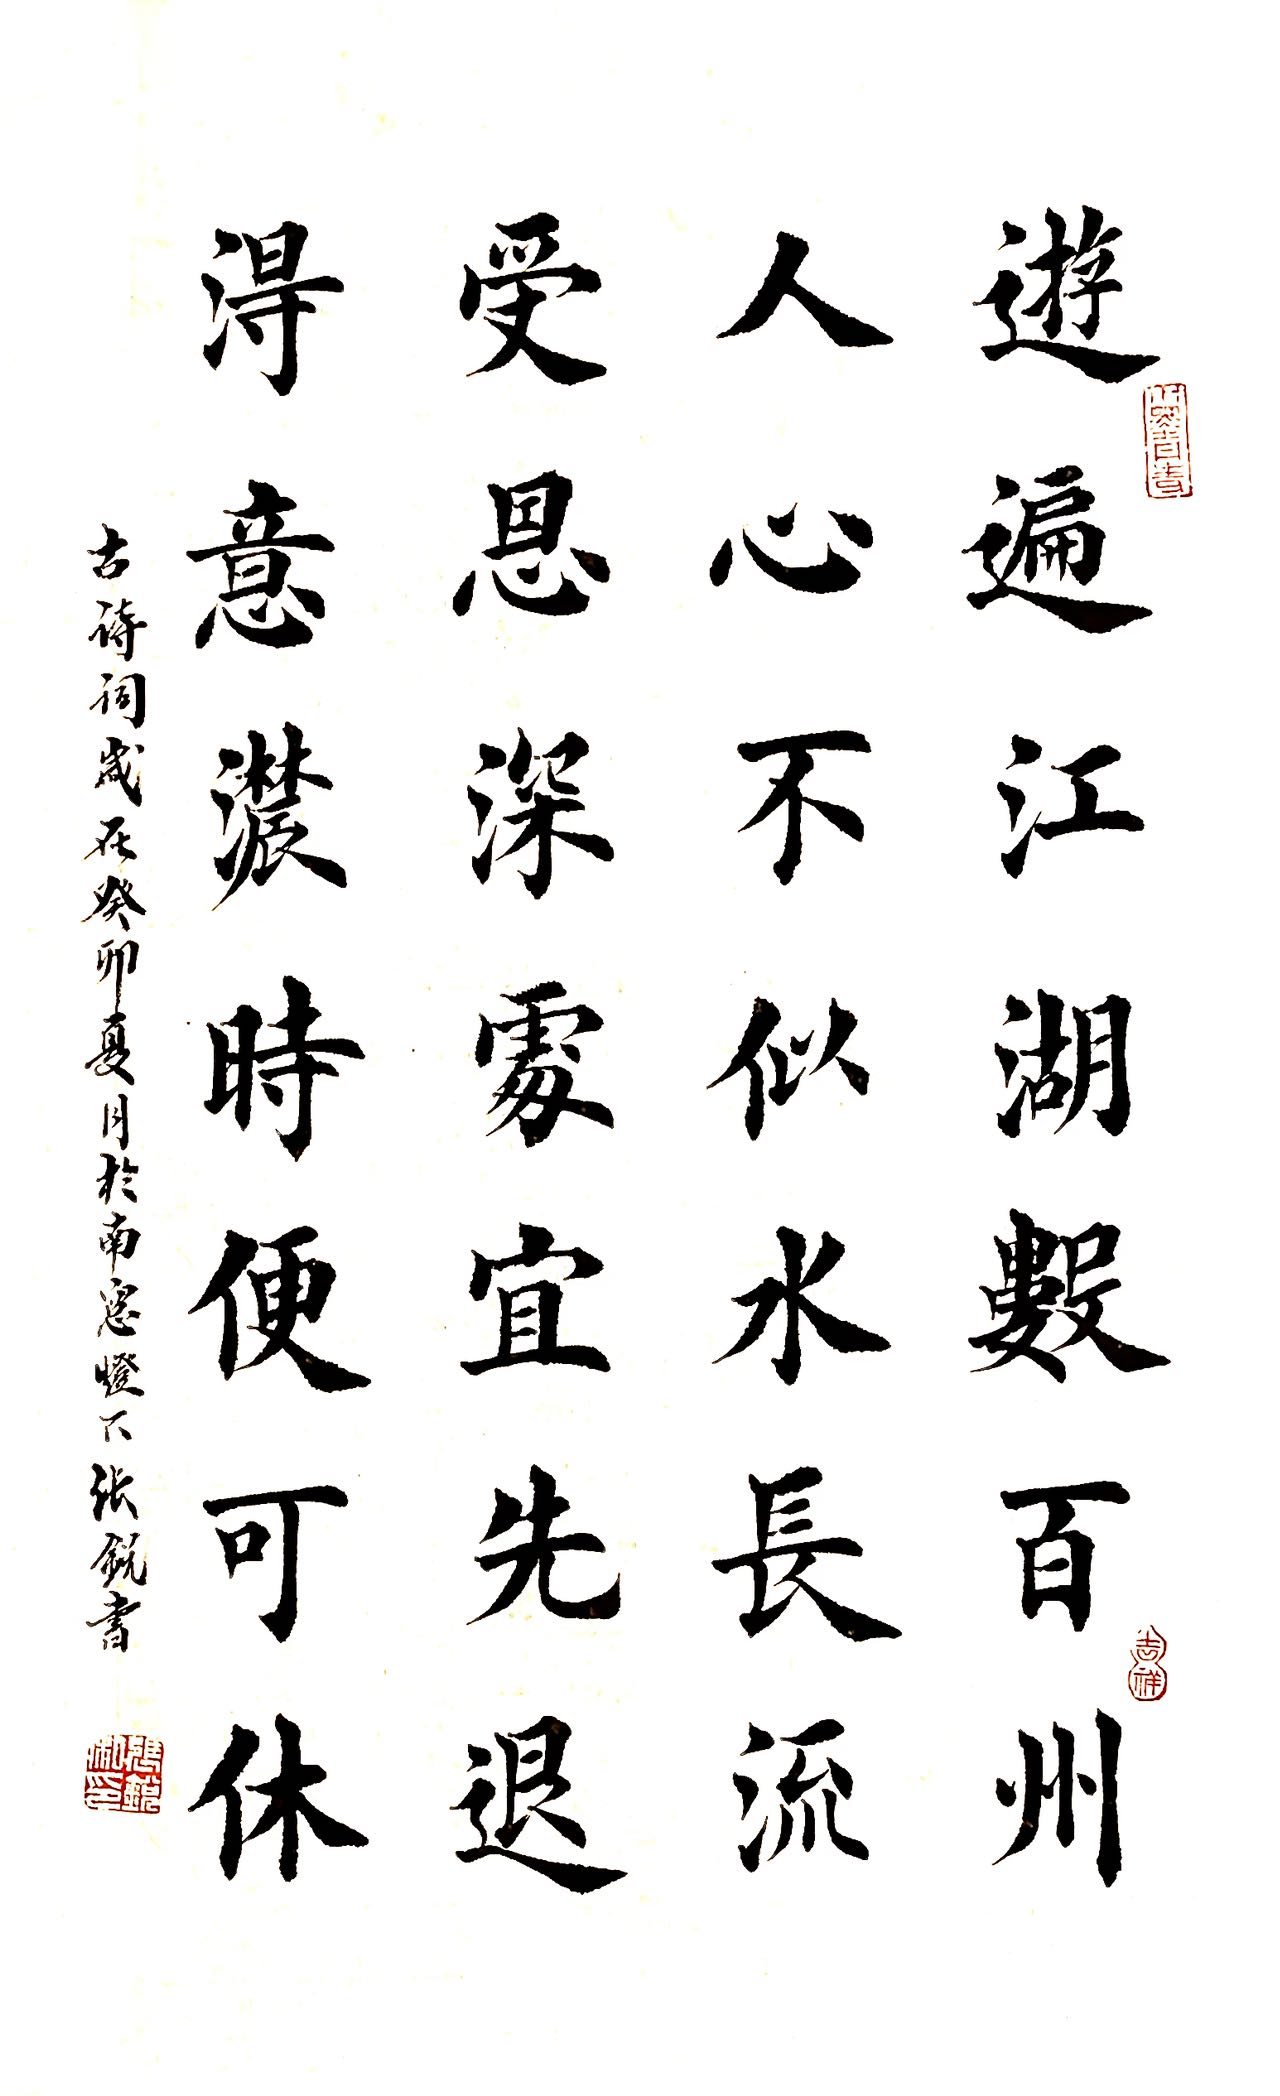 遊遍江湖數百州
人心不似水長流
受恩深處宜先退
得意濃時便可休
古诗词歲在癸卯夏月於南窓燈下张銳書
吉祥
張銳